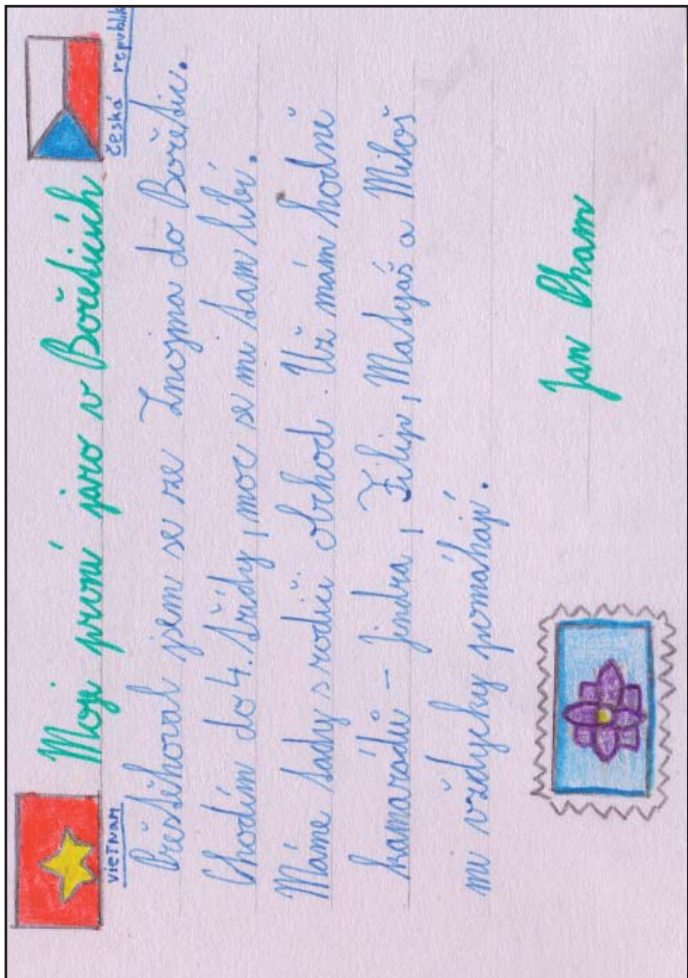 Moje první jaro v Bořeticích
VIETNAM
česká republik
Přestěhoval jsem se ze Znojma do Bořetic.
Chodím do 4. třídy, moc se mi tam líbí.
Máme tady s rodiči obchod. Už mám hodně
kamarádů – Jindra, Filip, Matyáš a Miloš
mi vždycky pomáhají.
Jan Pham